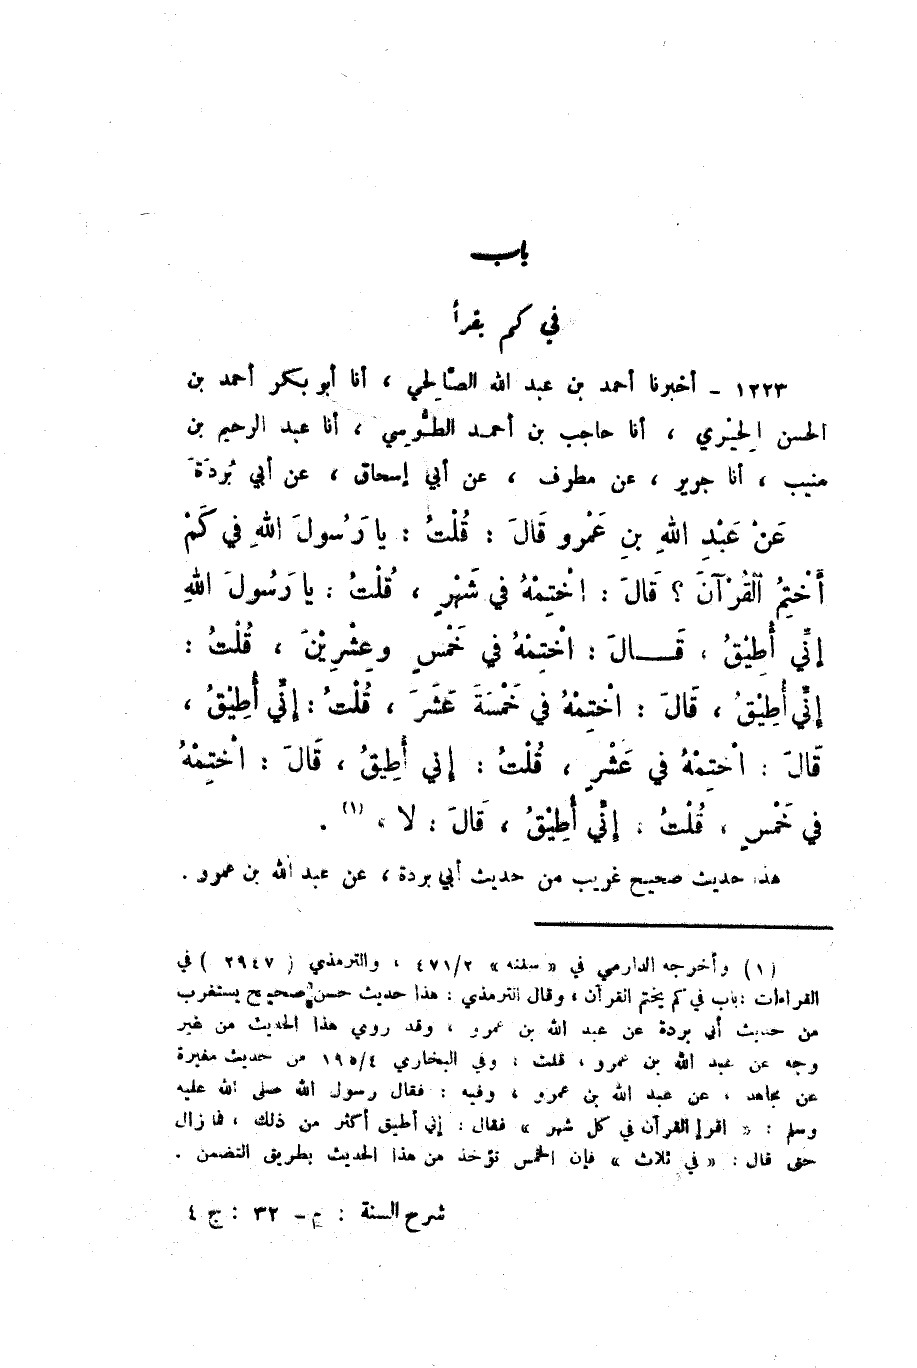 باب
في كم يقرأ
١٢٢٣ ـ أخبرنا أحمد بن عبد الله الصَّالِحي ، أنا أبو بكر أحمد بن
الحسن الحِيْري ، أنا حاجب بن أحمد الطُّوسِي ، أنا عبد الرحيم بن
منيب ، أنا جرير ، عن مطرف ، عن أبي إسحاق ، عن أبي بُردَةَ
عَنْ عَبْدِ اللهِ بنِ عَمْرو قَالَ : قُلْتُ : يا رَسُولَ اللهِ في كَمْ
أَخْتِمُ القُرْآنَ ؟ قَالَ : اخْتِمْهُ في شَهْرٍ ، قُلْتُ : يا رَسُولَ اللهِ
إنِّي أُطِيْقُ ، قَـــالَ : اخْتِمْهُ في خَمْسٍ وعِشْرِيْنَ ، قُلْتُ :
إنِّي أُطِيْقُ ، قَالَ : اخْتِمْهُ في خَمْسَةَ عَشَرَ ، قُلْتُ : إنِّي أُطِيْقُ ،
قَالَ : اخْتِمْهُ في عَشْرٍ ، قُلْتُ : إني أُطِيقُ ، قَالَ : اخْتِمْهُ
في خَمْسٍ ، قُلْتُ : إنِّي أُطِيْقُ ، قَالَ : لا ، (١) .
هذا حديث صحيح غريب من حديث أبي بردة ، عن عبد الله بن عمرو .
(١) وأخرجه الدارمي في « سننه » ٤٧١/٢ ، والترمذي ( ٢٩٤٧ ) في
القراءات : باب في كم يختم القرآن ، وقال الترمذي : هذا حديث حسن صحيح يستغرب
من حديث أبي بردة عن عبد الله بن عمرو ، وقد روي هذا الحديث من غير
وجه عن عبد الله بن عمرو ، قلت : وفي البخاري ١٩٥/٤ من حديث مغيرة
عن مجاهد ، عن عبد الله بن عمرو ، وفيه : فقال رسول الله صلى الله عليه
وسلم : « اقرإ القرآن في كل شهر » فقال : إني أطيق أكثر من ذلك ، فما زال
حتى قال : « في ثلاث » فإن الخمس تؤخذ من هذا الحديث بطريق التضمن .
شرح السنة : م ـ ٣٢ : ج ٤